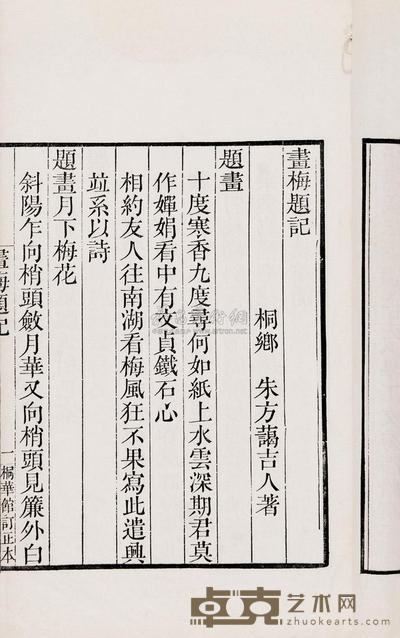 畫梅題記
桐鄉 朱方藹吉人著
題畫
十度寒香九度尋何如紙上水雲深期君莫
作嬋娟看中有文貞鐵石心
相約友人往南湖看梅風狂不果寫此遣興
竝系以詩
題畫月下梅花
斜陽乍向梢頭斂月華又向梢頭見簾外白
畫梅題記
一
桐華館訂正本
卓克艺术网
www.zhuokearts.com